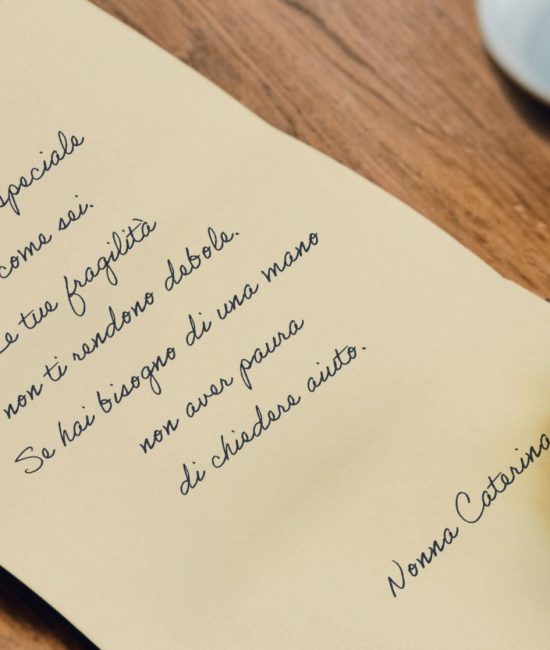 speciale
come sei.
e tue fragilità
non ti rendono debole.
Se hai bisogno di una mano
non aver paura
di chiedere aiuto.
Nonna Caterina